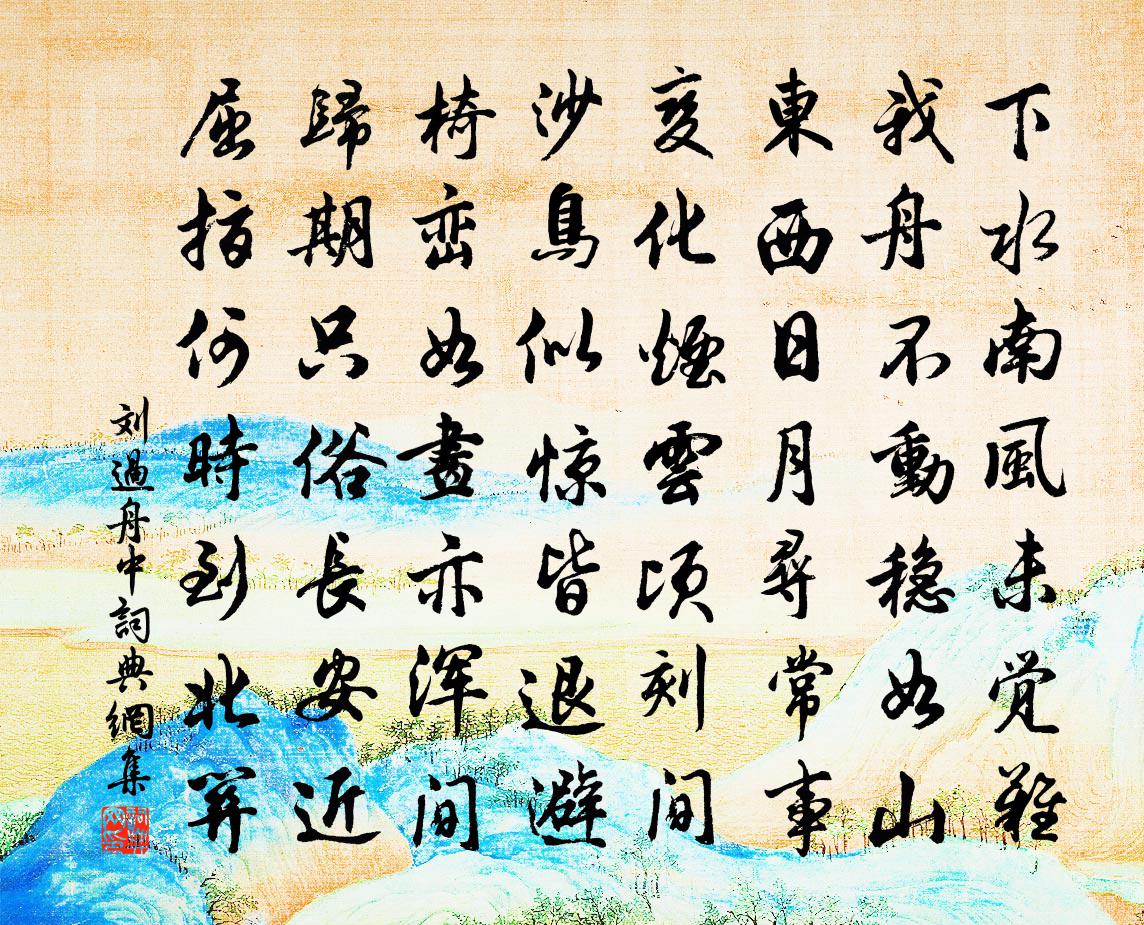 下水南風未觉難
我舟不動稳如山
東西日月尋常事
变化煙雲頃刻间
沙鳥似惊皆退避
椅峦如畫亦浑间
歸期只俗長安近
屈指何時到北
刘過舟中詞典網集